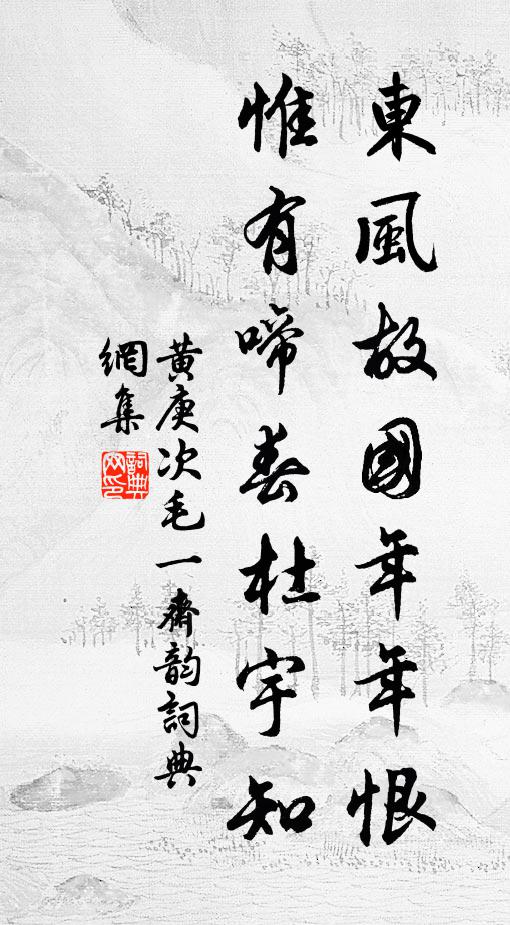 東風故國年年恨
惟有啼春杜宇知
黃庚次毛一齋韵詞典
網集
詞典網印